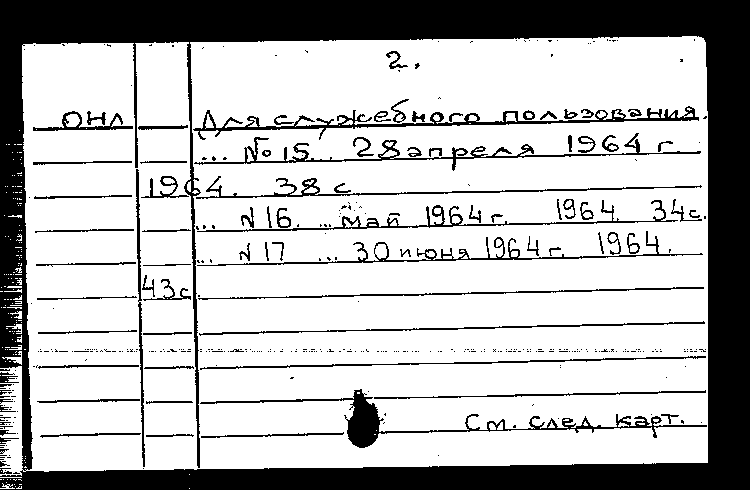 2.
ОНЛ Для служебного пользования.
... № 15... 28 апреля 1964 г.
1964. 38 с
... N 16. ... май 1964 г. 1964. 34 с.
... N 17 ... 30 июня 1964 г. 1964.
43 с
См. след. карт.